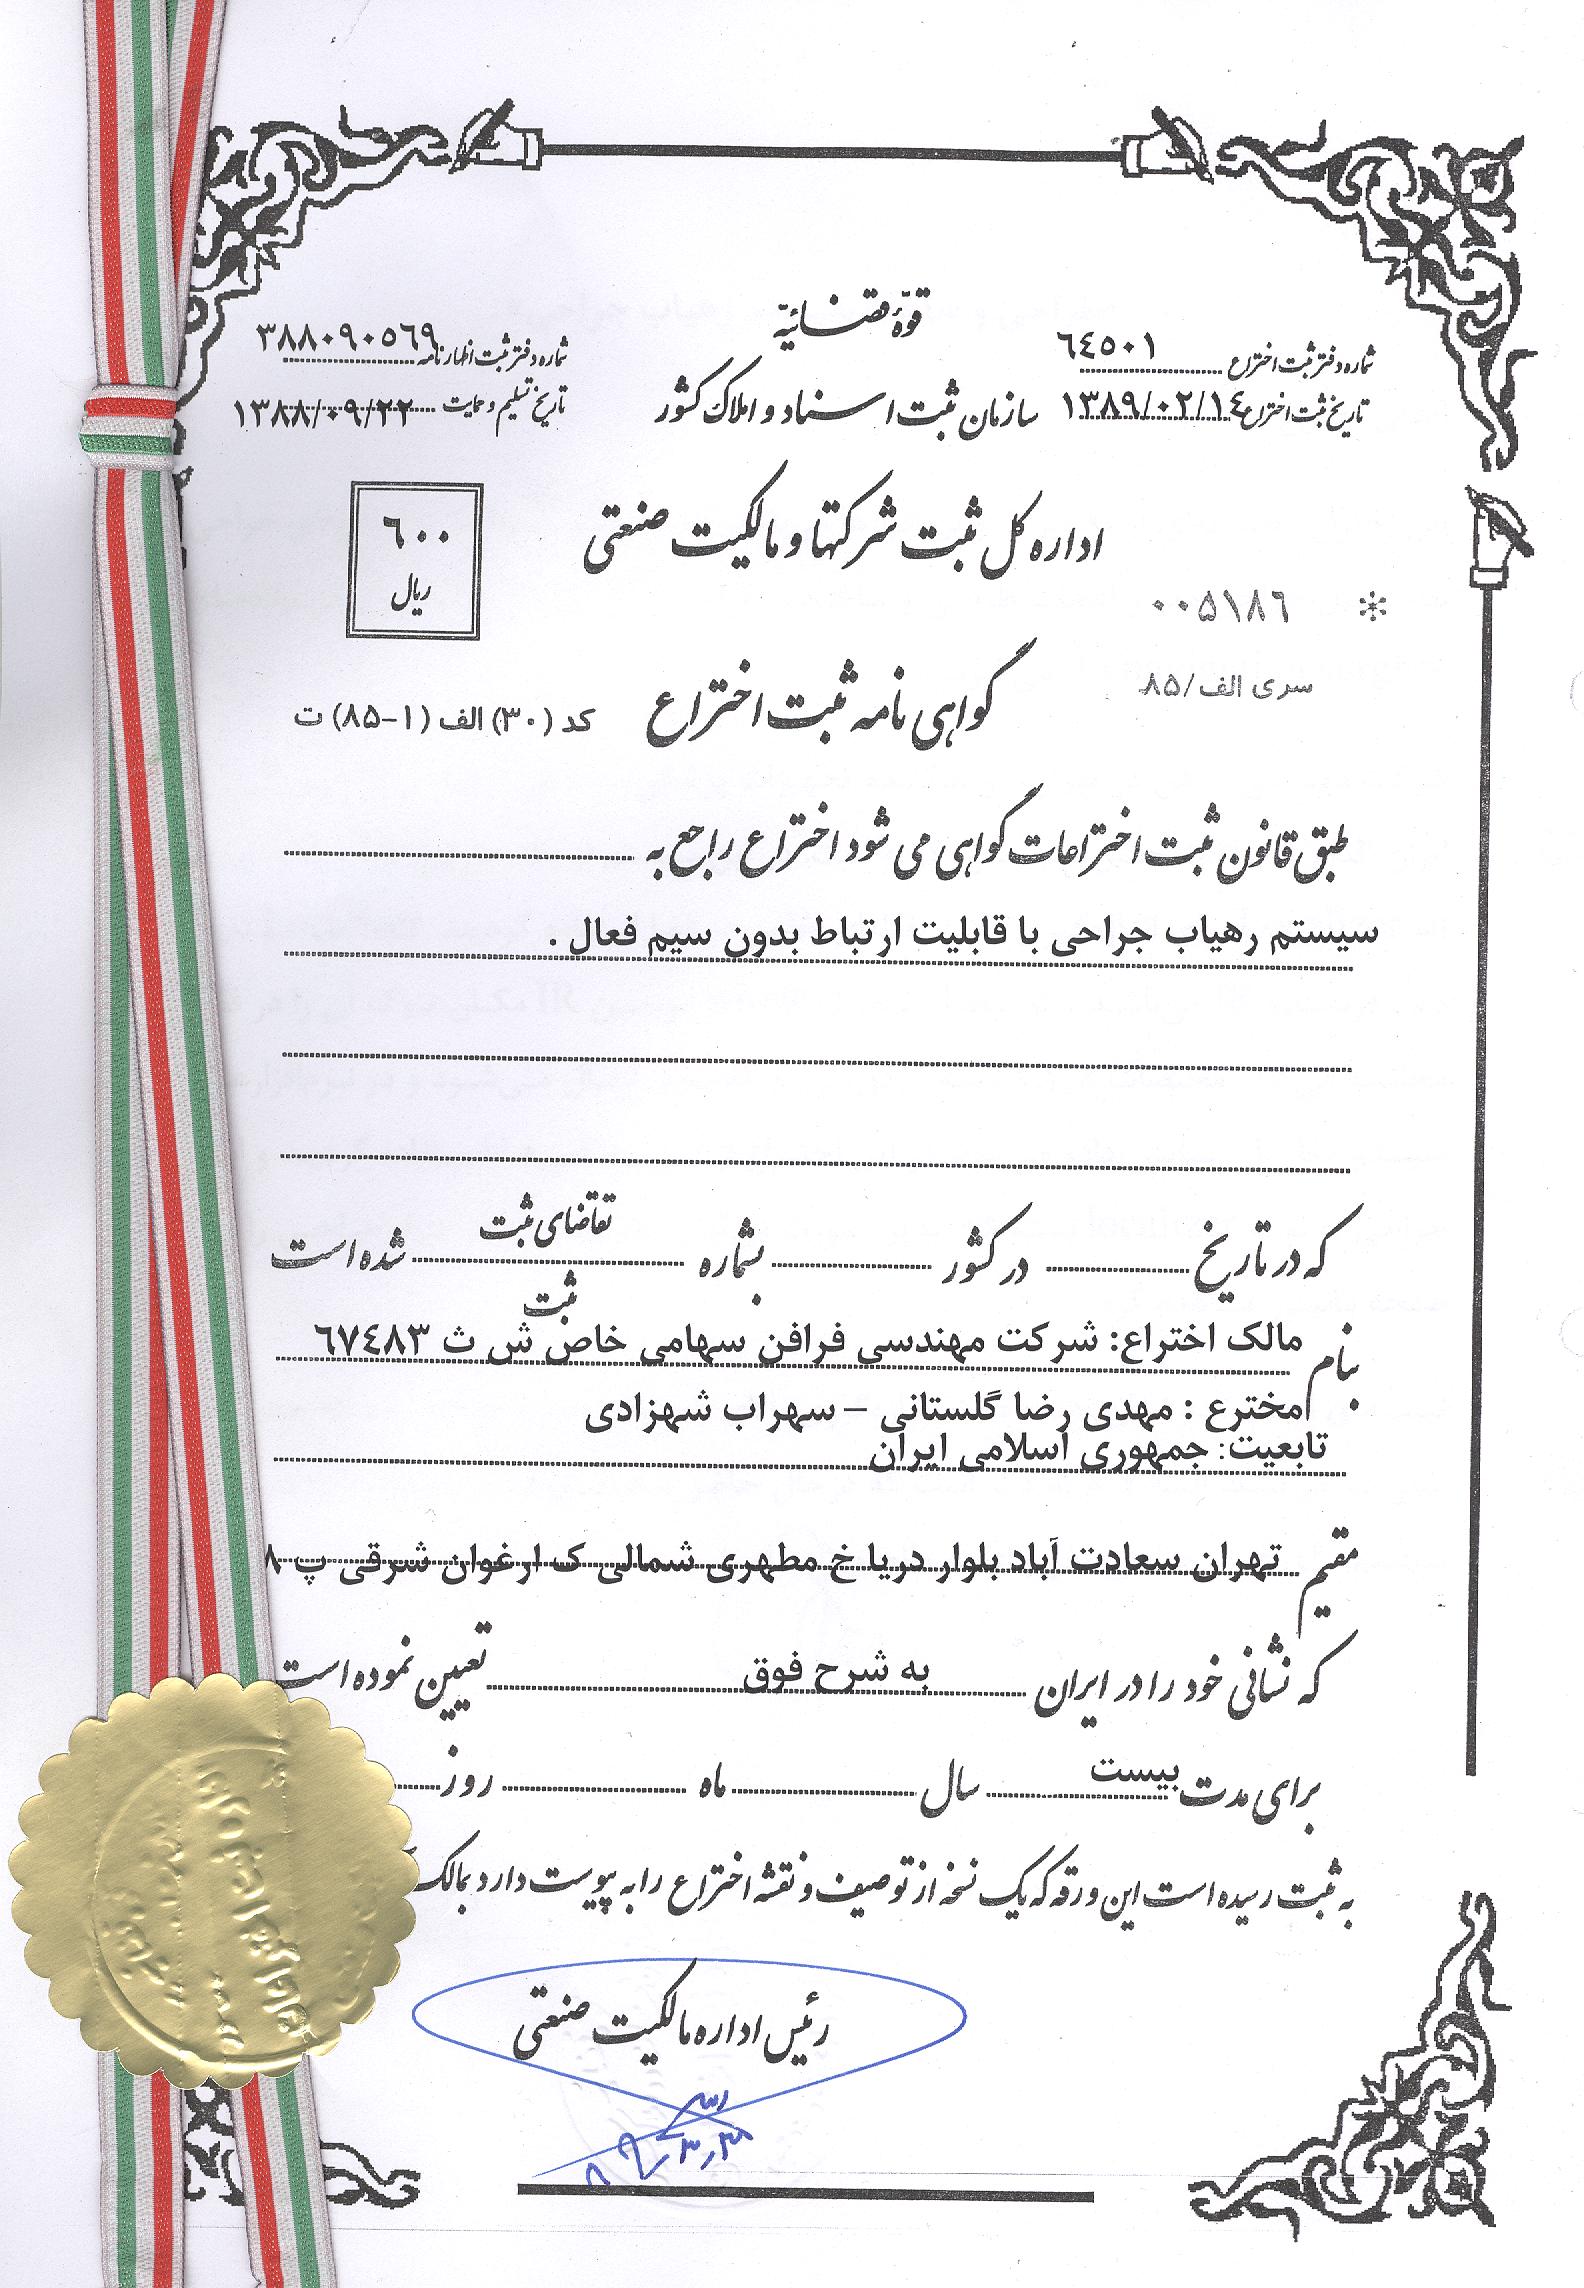 قوّهٔ قضائیّه
شماره دفتر ثبت اختراع ٦٤٥٠١
شماره دفتر ثبت اظهارنامه ٣٨٨٠٩٠٥٦٩
سازمان ثبت اسناد و املاک کشور
تاریخ ثبت اختراع ١٣٨٩/٠٢/١٤
تاریخ تسلیم و حمایت ١٣٨٨/٠٩/٢٢
اداره کل ثبت شرکتها و مالکیت صنعتی
٦٠٠
ریال
* ٠٠٥١٨٦
سری الف/٨٥
گواهی نامه ثبت اختراع
کد (٣٠) الف (١-٨٥) ت
طبق قانون ثبت اختراعات گواهی می شود اختراع راجع به
سیستم رهیاب جراحی با قابلیت ارتباط بدون سیم فعال .
که در تاریخ در کشور بشماره تقاضای ثبت شده است
ثبت
بنام مالک اختراع: شرکت مهندسی فرافن سهامی خاص ش ث ٦٧٤٨٣
مخترع : مهدی رضا گلستانی – سهراب شهزادی
تابعیت: جمهوری اسلامی ایران
مقیم تهران سعادت آباد بلوار دریا خ مطهری شمالی ک ارغوان شرقی پ ٨
که نشانی خود را در ایران به شرح فوق تعیین نموده است
برای مدت بیست سال ماه روز
به ثبت رسیده است این ورقه که یک نسخه از توصیف و نقشه اختراع را به پیوست دارد بمالک
رئیس اداره مالکیت صنعتی